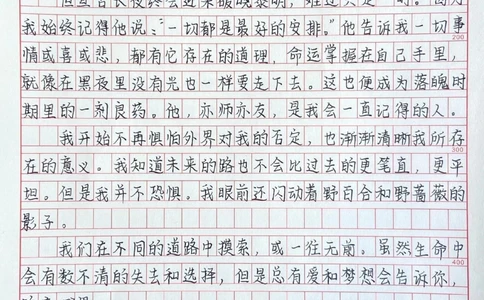 我始终记得他说:“一切都是最好的安排。”他告诉我一切事
200
情或喜或悲,都有它存在的道理,命运掌握在自己手里,
就像在黑夜里没有光也一样要走下去。这也便成为落魄时
期里的一剂良药。他,亦师亦友,是我会一直记得的人。
我开始不再惧怕外界对我的否定,也渐渐清晰我所存
300
在的意义。我知道未来的路也不会比过去的更笔直,更平
坦。但是我并不恐惧。我眼前还闪动着野百合和野蔷薇的
影子。
我们在不同的道路中摸索,或一往无前。虽然生命中
400
会有数不清的失去和选择,但是总有爱和梦想会告诉你,